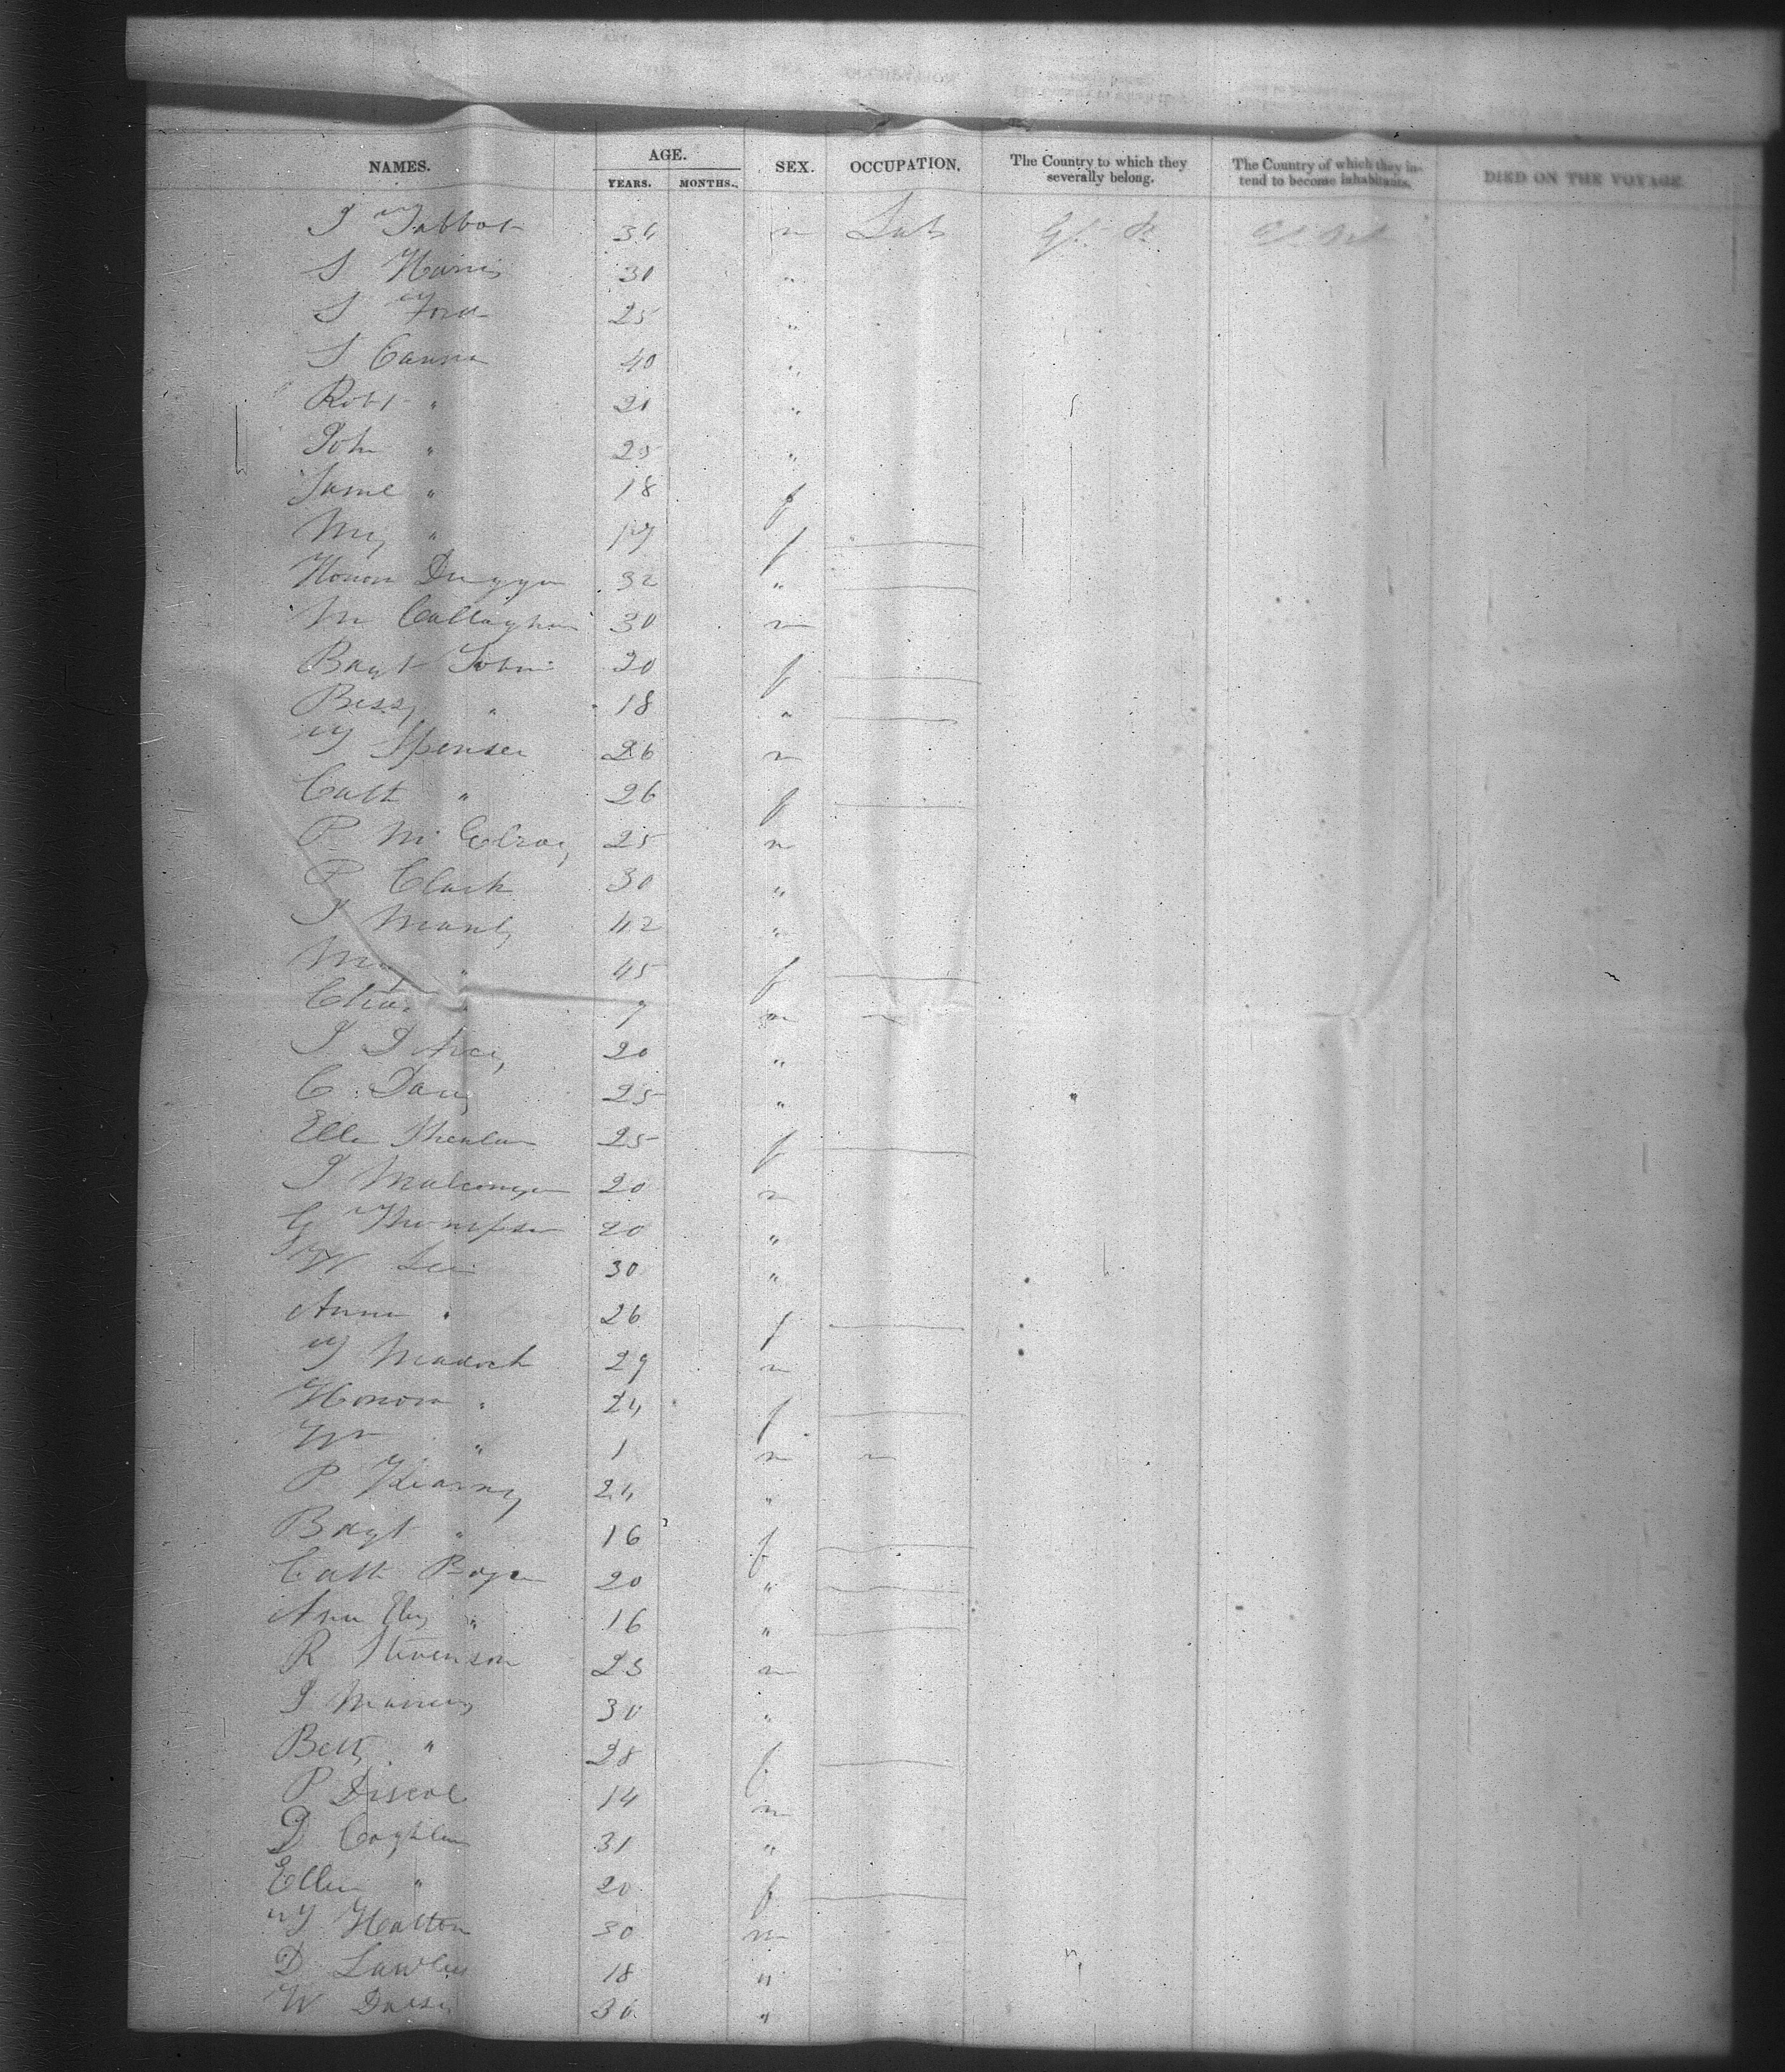 NAMES. AGE. YEARS. MONTHS. SEX. OCCUPATION. The Country to which they severally belong. The Country of which they intend to become inhabitants. DIED ON THE VOYAGE
J Tabbot 34 m Lab
S Harris 30 "
S Ford 25 "
S Cannon 40 "
Robt " 21 "
John " 25 "
Jane " 18 f
My " 17 f
Honor Duggan 32 "
M Callaghan 30 m
Bragt Tobin 20 f
Bessy " 18 "
T Spenser 26 m
Cath " 26 f
P McElroy 25 m
P Clark 30 "
J Manly 42 "
My " 45 f
Chas " 9 m
J D Arcy 20 "
C Davy 25 "
Ellen 25 f
J 20 m
G Thompson 20 "
W Lee 30 "
Anne " 26 f
T Madock 29 m
Honora " 24 f
Wm " 1 m
P Kearney 24 "
Bragt " 16 f
Cath 20 "
Ann Eliz " 16 "
R Stevenson 23 m
J 30 "
Betty " 28 f
P Driscol 14 m
D Coghlan 31 "
Ellen " 20 f
T Halton 30 m
D Lawless 18 "
W 30 "